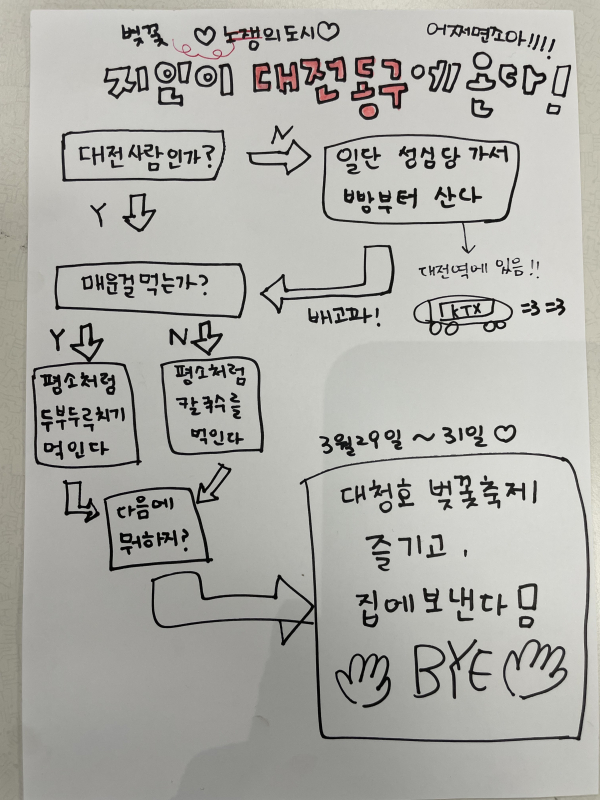 벚꽃 ♡ 노쨍의도시♡
어쩌면조아!!!!
지인이 대전동구에온다!!
대전사람인가?
N
일단 성심당 가서
빵부터 산다
Y
대전역에 있음!!
KTX =3 =3
매운걸먹는가?
배고파!
Y
N
평소처럼
두부두루치기
먹인다
평소처럼
칼국수를
먹인다
다음에
뭐하지?
3월29일 ~ 31일♡
대청호 벚꽃축제
즐기고,
집에보낸다
BYE